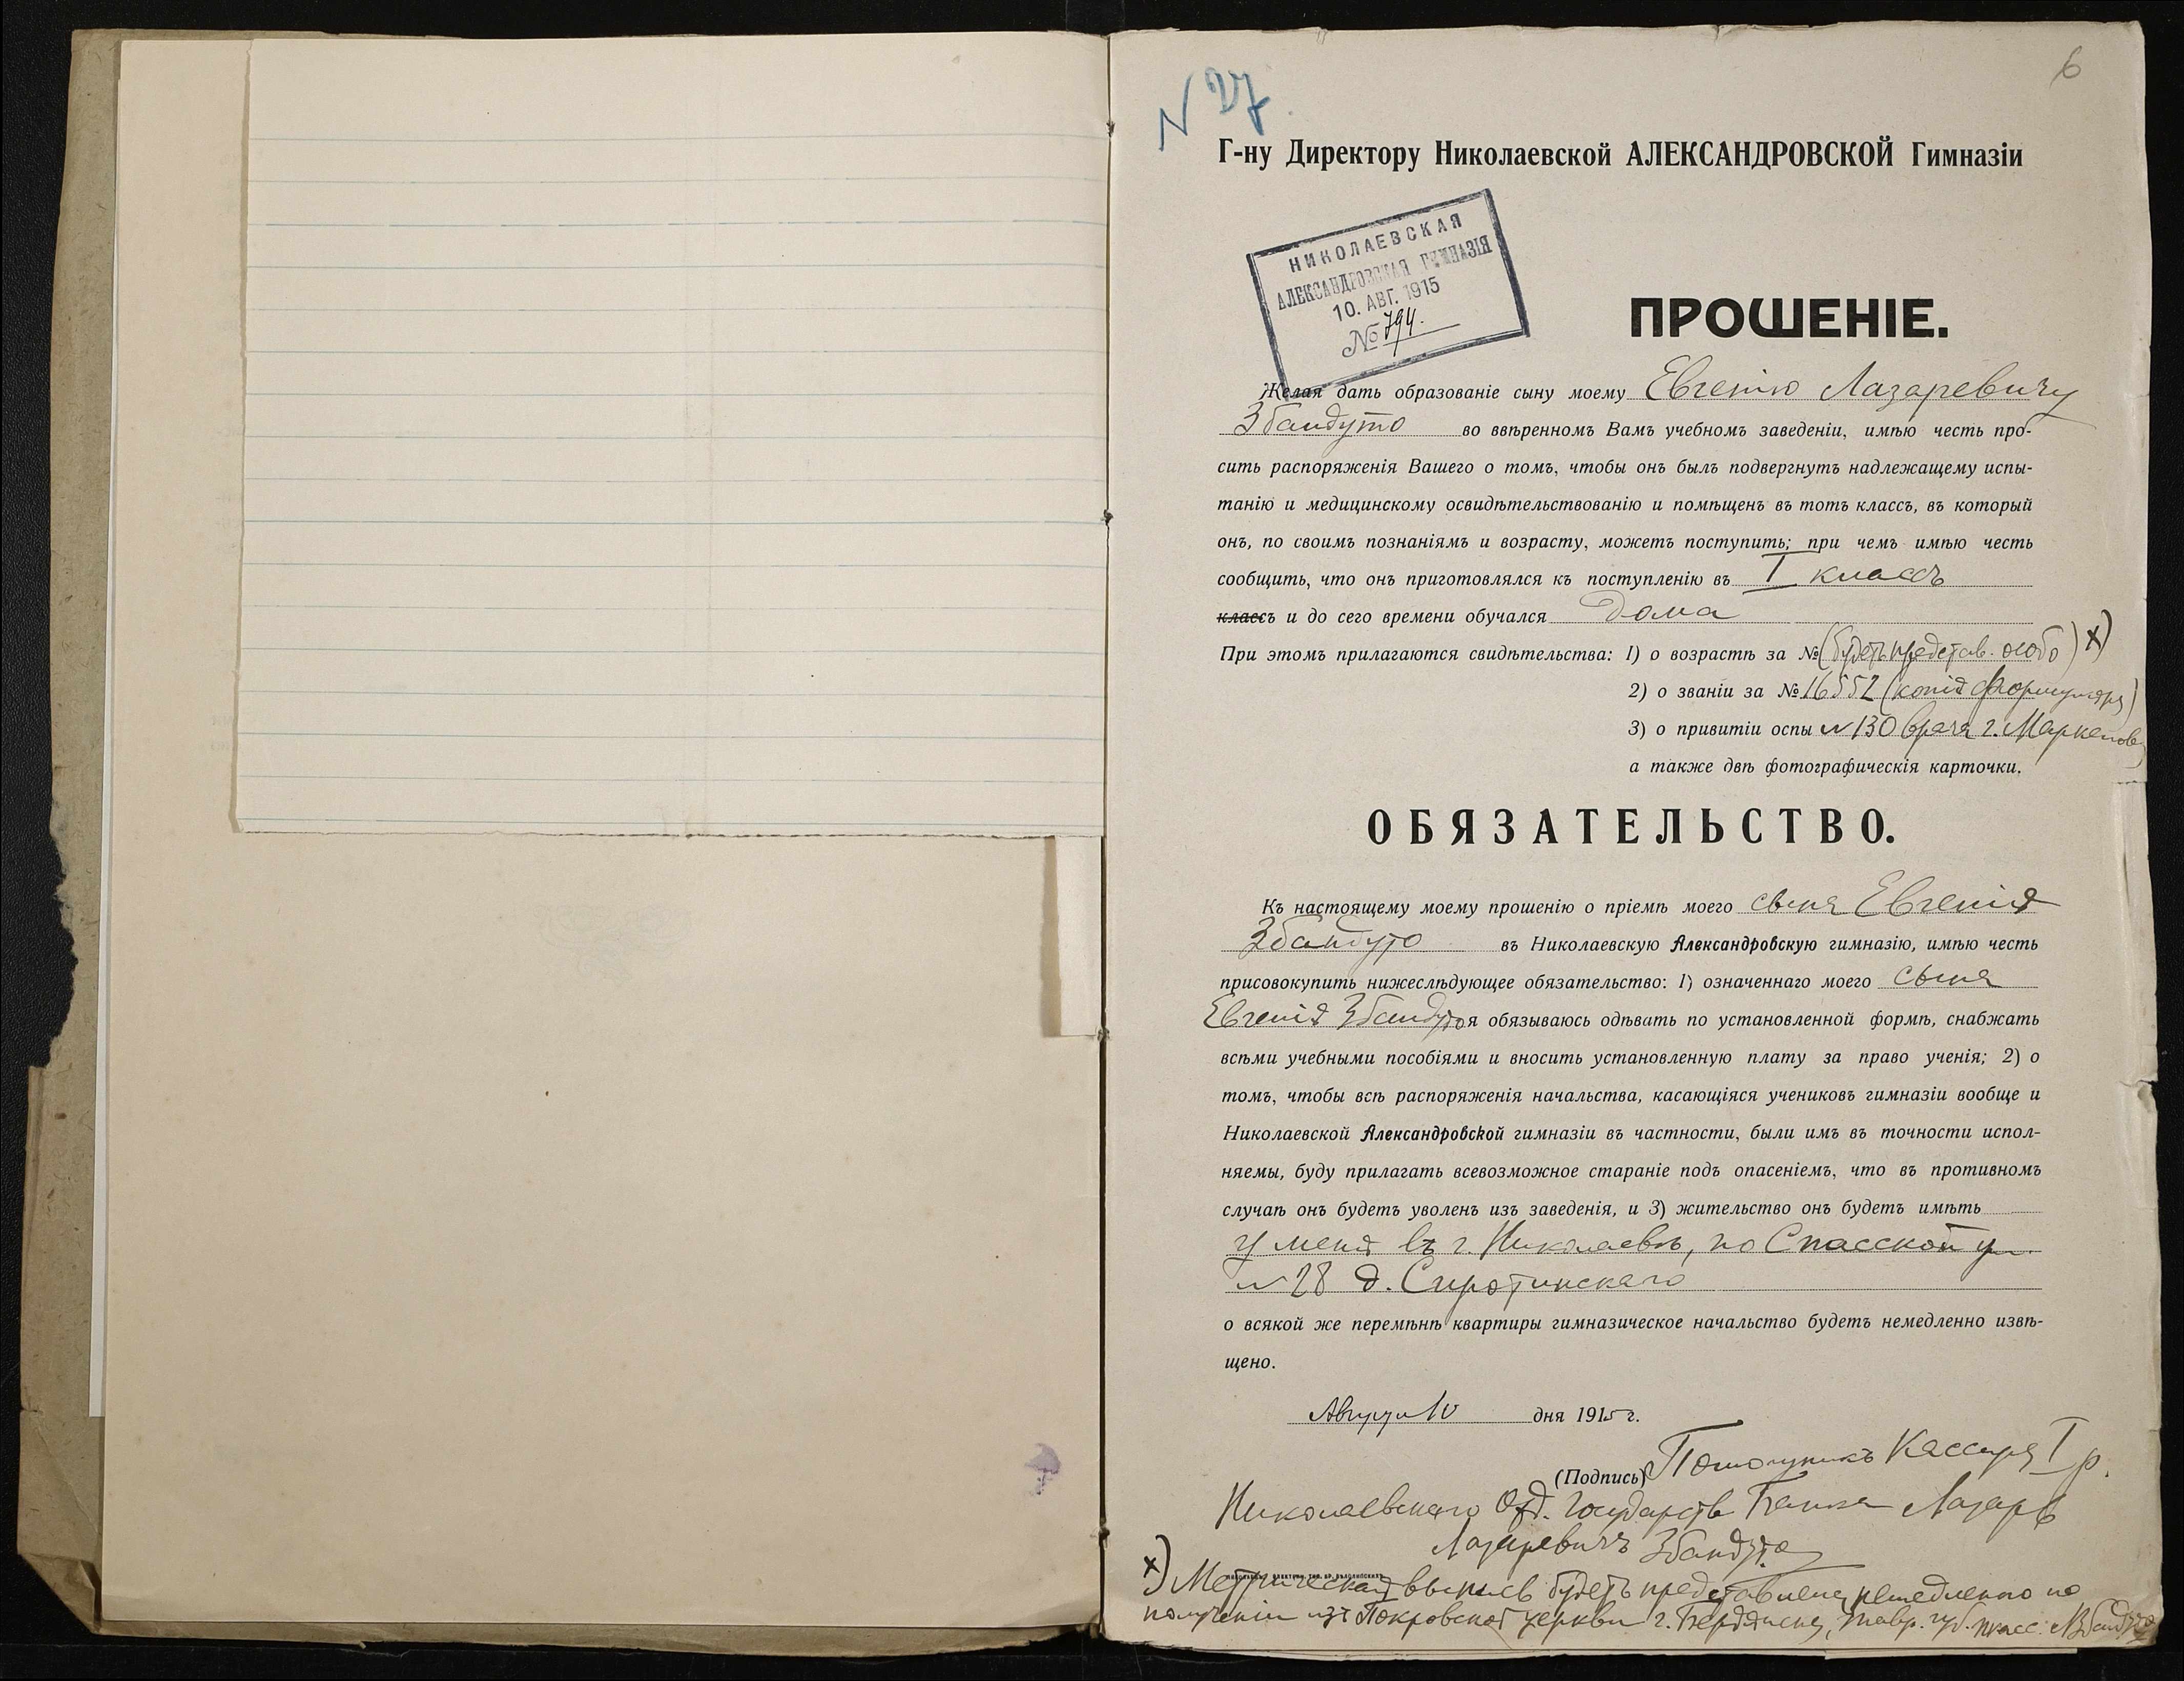 N 27
6
Г-ну Директору Николаевской АЛЕКСАНДРОВСКОЙ Гимназіи
НИКОЛАЕВСКАЯ
АЛЕКСАНДРОВСКАЯ ГИМНАЗІЯ
10. АВГ. 1915
№ 794.
ПРОШЕНІЕ.
Желая дать образованіе сыну моему Евгенію Лазаревичу
Збандуто во ввѣренномъ Вамъ учебномъ заведеніи, имѣю честь про-
сить распоряженія Вашего о томъ, чтобы онъ былъ подвергнутъ надлежащему испы-
танію и медицинскому освидѣтельствованію и помѣщенъ въ тотъ классъ, въ который
онъ, по своимъ познаніямъ и возрасту, можетъ поступить; при чемъ имѣю честь
сообщить, что онъ приготовлялся къ поступленію въ I классъ
классъ и до сего времени обучался Дома
При этомъ прилагаются свидѣтельства: 1) о возрастѣ за № (будетъ представ. особо) х)
2) о званіи за № 16552 (копія формуляра)
3) о привитіи оспы N 130 врача г. Маркелова
а также двѣ фотографическія карточки.
ОБЯЗАТЕЛЬСТВО.
Къ настоящему моему прошенію о пріемѣ моего сына Евгенія
Збандуто въ Николаевскую Александровскую гимназію, имѣю честь
присовокупить нижеслѣдующее обязательство: 1) означеннаго моего сына
Евгенія Збандуто я обязываюсь одѣвать по установленной формѣ, снабжать
всѣми учебными пособіями и вносить установленную плату за право ученія; 2) о
томъ, чтобы всѣ распоряженія начальства, касающіяся учениковъ гимназіи вообще и
Николаевской Александровской гимназіи въ частности, были имъ въ точности испол-
няемы, буду прилагать всевозможное стараніе подъ опасеніемъ, что въ противномъ
случаѣ онъ будетъ уволенъ изъ заведенія, и 3) жительство онъ будетъ имѣть
у меня въ г. Николаевѣ, по Спасской ул.
N 28 д. Сиротинскаго
о всякой же перемѣнѣ квартиры гимназическое начальство будетъ немедленно извѣ-
щено.
Августа 10 дня 1915 г.
(Подпись) Помощникъ Кассира I р.
Николаевскаго Отд. Государств Банка Лазарь
Лазаревичъ Збандуто
х) Метрическая выпись будетъ представлена немедленно по
полученіи изъ Покровской церкви г. Бердянска, Тавр. губ. Збандуто